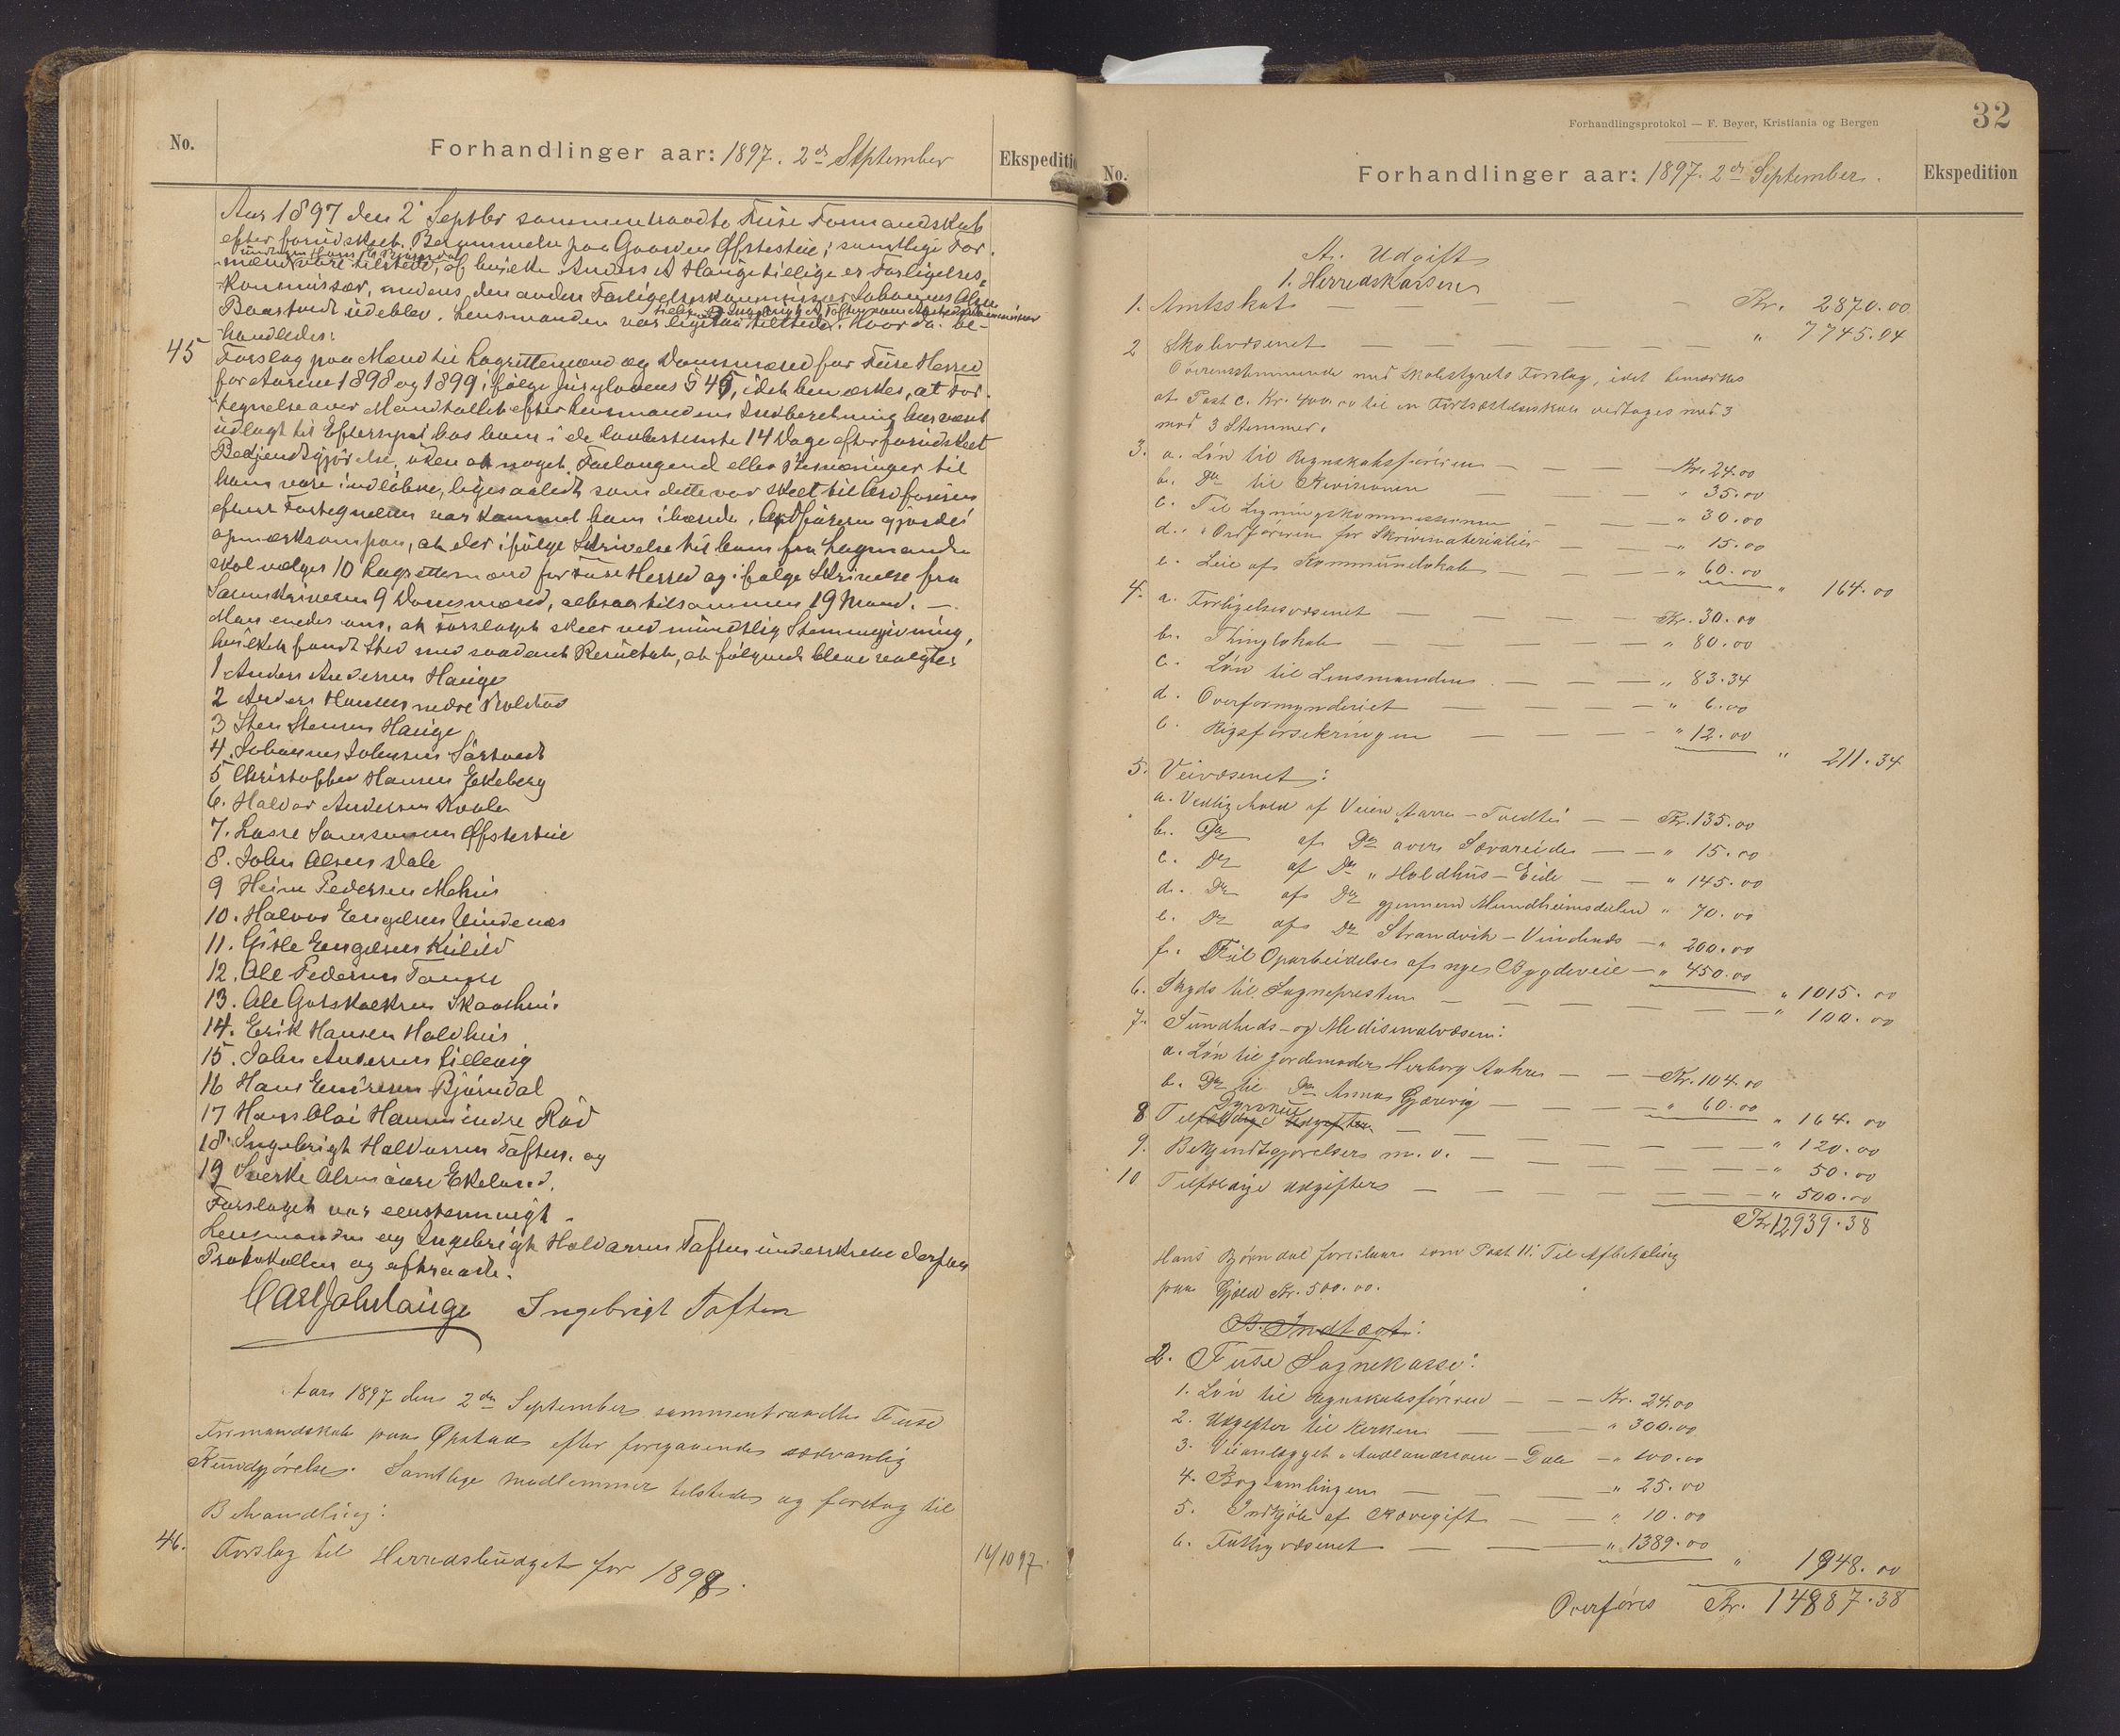 No.
Forhandlinger aar: 1897. 2den September
Ekspediti
Aar 1897 den 2' Septbr sammentraadte Fuse Formandskab
efter forudskeet Berammelse paa Gaarden Øfstestue; samtlige For-
undtagen Hans E. Bjørndal
mænd vare tilstede, af hvilke Anders A Hauge tillige er Forligelses-
Kommissær, medens den anden Forligelseskommissær Johannes Olsen
tilligemed Ingebrigt H. Toften som
Baastvedt udeblev. Lensmanden var ligesaa tilstede. Hvorda be-
handledes:
45 Forslag paa Mænd til Lagrettemænd og Domsmænd for Fuse Herred
for Aarene 1898 og 1899 ifølge Jurylovens § 45, idet bemærkes, at For-
tegnelse over Mandtallet efter Lensmandens Indberetning har været
udlagt til Eftersyn hos ham i de lovbestemte 14 Dage efter forudskeet
Bekjendtgjørelse, uden at noget Forlangende eller Bemærkninger til
ham vare indløbne, ligesaaledes som dette var skeet til Ordføreren
efterat Fortegnelsen var kommet ham ihænde. Ordføreren gjorde
opmærksom paa, at der ifølge Skrivelse til ham fra Lagmanden
skal vælges 10 Lagrettemænd for Fuse Herred og ifølge Skrivelse fra
Sorenskriveren 9 Domsmænd, altsaa tilsammen 19 Mand. —
Man enedes om, at Forslaget skeer ved mundtlig Stemmegivning,
hvilket fandt Sted med saadant Resultat, at følgende bleve valgte:
1 Anders Andersen Hauge
2 Anders Hansen nedre Kolstad
3 Sten Stensen Hauge
4. Johannes Johnsen Sørtvedt
5 Christoffer Hansen Ekeberg
6. Halvor Andersen
7. Lasse Samsonsen Øfstestue
8. John Olsen Dale
9 Heine Pedersen Mehus
10. Halvor Engelsen Vindenæs
11. Gitle Engelsen Kulild
12. Ole Pedersen
13. Ole Gotskalksen Skaathun
14. Erik Hansen Holdhus
15. John Andersen Lillevig
16 Hans Endresen Bjørndal
17 Hans Olai Hansen indre Rød
18. Ingebrigt Halvorsen Toften. og
19 Sverke Olsen øvre Ekeland.
Forslaget var eenstemmigt.
Lensmanden og Ingebrigt Halvorsen Toften underskreve derpaa
Protokollen og aftraadte.
Carl Joh Hauge Ingebrigt Toften
Aar 1897 den 2den September sammentraadte Fuse
Formandskab paa Øpstad efter foregaaende sædvanlig
Kundgjørelse. Samtlige medlemmer tilstede og foretog til
Behandling:
46. Forslag til Herredsbudget for 1898.
16/10 97.
32
Forhandlingsprotokol — F. Beyer, Kristiania og Bergen
No.
Forhandlinger aar: 1897. 2den September.
Ekspedition
A. Udgift
1. Herredskassen
1. Amtsskat — — — Kr. 2870.00
2 Skolevæsenet — — — — — — " 7745.04
Overensstemmende med Skolestyrets Forslag, idet bemærkes
at Post c. Kr. 400.00 til en Fortsættelsesskole vedtoges med 3
mod 3 Stemmer.
3. a. Løn til Regnskabsføreren — — — Kr. 24.00
b. Do til Revisionen — — " 35.00
c. Til Ligningskommissionen — — " 30.00
d. " Ordføreren for Skrivematerialier — — " 15.00
e. Leie af Kommunelokale — — — " 60.00 " 164.00
4. a. Forligelsesvæsenet — — — — Kr. 30.00
b. Thinglokale — — — " 80.00
c. Løn til Lensmanden — — — " 83.34
d. Overformynderiet — — — " 6.00
e. Rigsforsikringen — — — " 12.00 " 211.34
5. Veivæsenet:
a. Vedligehold af Veien Aarre – Tvedte — — Kr. 135.00
b. Do af Do over Sævareide — — " 15.00
c. Do af Do " Holdhus – Eide — — " 145.00
d. Do af Do gjennem Mundheimsdalen " 70.00
e. Do af Do Strandvik – Vindenæs — " 200.00
f. Til Oparbeidelse af nye Bygdeveie — " 450.00 " 1015.00
6. Skyds til Sognepresten — — — — — " 100.00
7. Sundheds- og Medisinalvæsen:
a. Løn til Jordemoder Herborg — — Kr. 104.00
b. Do til Do Anna Gjærevig — — — " 60.00 " 164.00
Dyrskue
8 Tilfældige Udgifter — — — — — — " 120.00
9. Bekjendtgjørelsers m. v. — — — — — " 50.00
10 Tilfældige udgifter — — — — — " 500.00
Kr 12939.38
Hans Bjørndal foreslaar som Post 11: Til Afbetaling
paa Gjæld Kr. 500.00.
B. Indtægt:
2. Fuse Sognekasse:
1. Løn til Regnskabsføreren — — Kr. 24.00
2. Udgifter til Kirken — — " 300.00
3. Veianlægget " – Dale — " 200.00
4. Bogsamlingen — — — " 25.00
5. Indkjøb af Rævegift — — " 10.00
6. Fattigvæsenet — — — " 1389.00 " 1948.00
Overføres Kr. 14887.38